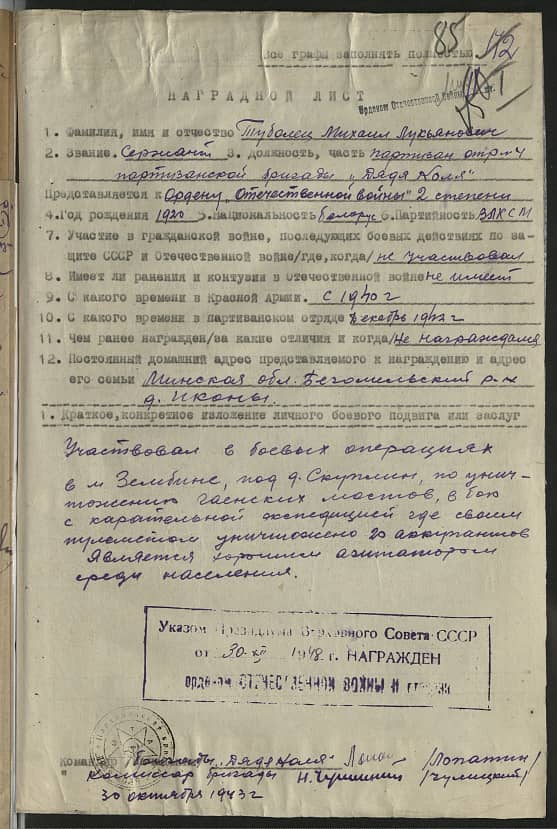 85
Все графы заполнять полностью
Орденом Отечественной Войны
НАГРАДНОЙ ЛИСТ
1. Фамилия, имя и отчество Туболец Михаил Лукьянович
2. Звание. Сержант 3. должность, часть партизан отр. №4
партизанской бригады "Дядя Коля"
Представляется к Ордену "Отечественной войны" 2 степени
4. Год рождения 1920 5. Национальность белорус 6. Партийность ВЛКСМ
7. Участие в гражданской войне, последующих боевых действиях по за-
щите СССР и Отечественной войне/где, когда/ не участвовал
8. Имеет ли ранения и контузия в Отечественной войне не имеет
9. С какого времени в Красной Армии. с 1940 г
10. С какого времени в партизанском отряде декабрь 1942 г
11. Чем ранее награжден/за какие отличия и когда/ не награждался
12. Постоянный домашний адрес представляемого к награждению и адрес
его семьи Минская обл. Бегомльский р-н
д. Иконы.
1. Краткое, конкретное изложение личного боевого подвига или заслуг
Участвовал в боевых операциях
в м Зембине, под д. Скуплин, по унич-
тожению гаенских мостов, в бою
с карательной экспедицией где своим
пулеметом уничтожено 20 аккупантов
Является хорошим агитатором
среди населения.
Указом Президиума Верховного Совета СССР
от 30-XII 1948 г. НАГРАЖДЕН
орденом ОТЕЧЕСТВЕННОЙ ВОЙНЫ II степени
Командир бригады "Дядя Коля" /Лопатин/
" Комиссар бригады /Чулицкий/
30 октября 1943 г